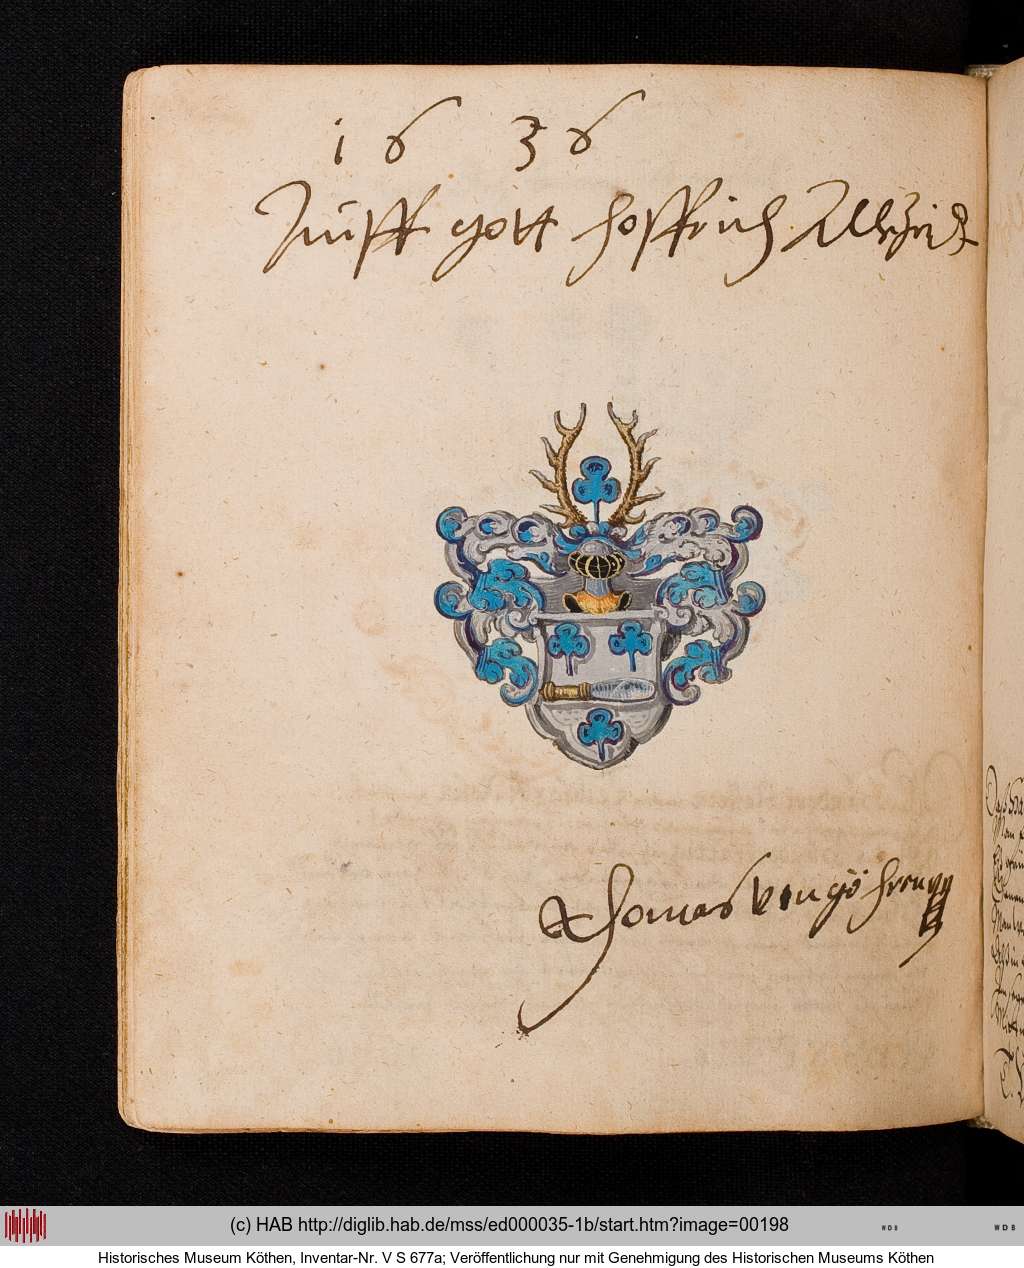 1636
Auff gott hoff ich Allezeidt
Thomas von
(c) HAB http://diglib.hab.de/mss/ed000035-1b/start.htm?image=00198
WDB
WDB
Historisches Museum Köthen, Inventar-Nr. V S 677a; Veröffentlichung nur mit Genehmigung des Historischen Museums Köthen